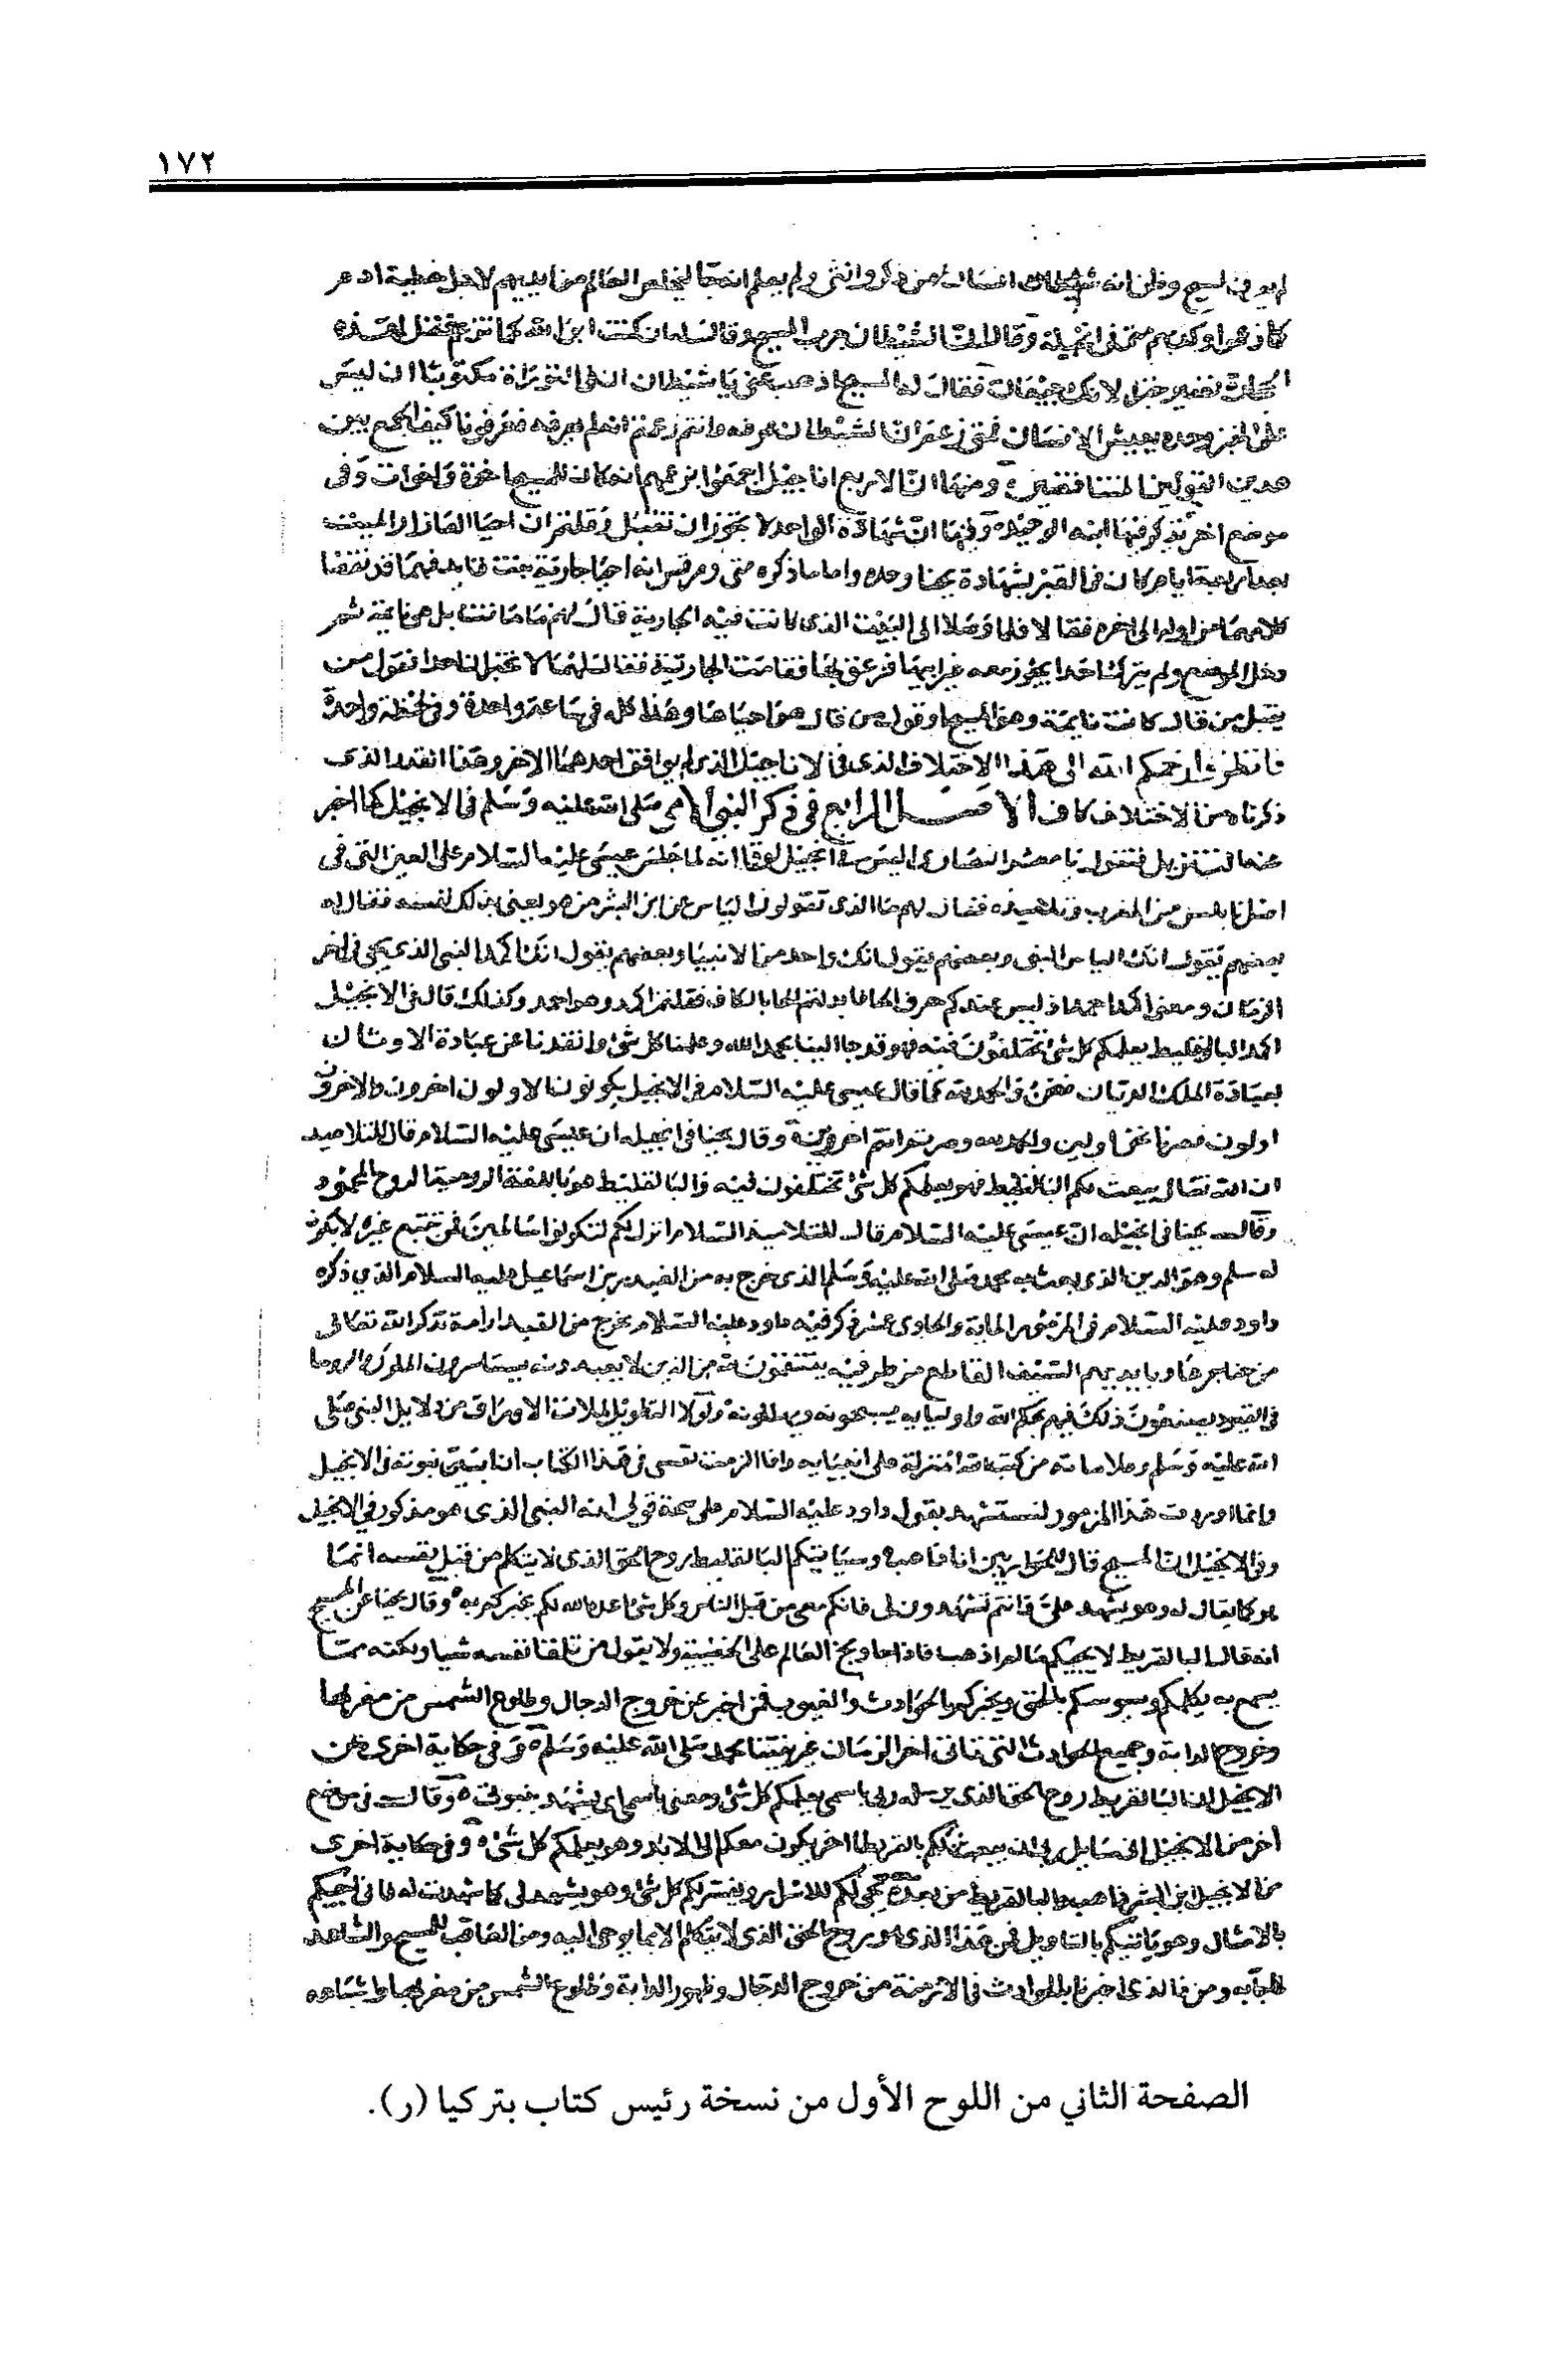 ١٧٢
وظن انه شيطان انسان من ذكر وانثى ولم يعلم انه جا ليخلص العالم من ايديهم لاجل خطية ادم
متى في انجيله وقال ان الشيطان جرب المسيح وقال له ان كنت ابن الله كما تزعم فقل لهذه
الحجارة تصير خبز لانك جيعان فقال له المسيح اذهب عني يا شيطان ان في التوراة مكتوبا ان ليس
على الخبز وحده يعيش الانسان فمتى زعم ان الشيطان عرفه وانتم زعمتم انه لم يعرفه فعرفونا كيف الجمع بين
هذين القولين المتناقضين ومنها ان الاربع اناجيل اجمعوا بزعمهم انه كان للمسيح اخوة واخوات وفي
موضع اخر تذكر فيها ابنه الوحيد ومنها ان شهادة الواحد لا يجوز ان تقبل وقلتم ان احيا العازار الميت
بعد اربعة ايام كان في القبر بشهادة يحنا وحده واما ما ذكره متى ومرقس انه احيا جارية
كلامهما من اوله الى اخره فقالا فلما وصلا الى البيت الذي كانت فيه الجارية قال لهم ما ماتت بل هي نايمة ثم
دخل الموضع ولم يترك احدا يجوز معه غير ابيها فزعق بها فقامت الجارية فقال لهما لا تخبرا احدا فقول من
يقبل من قال كانت نايمة وهو المسيح او قول من قال هو احياها وهذا كله في ساعة واحدة وفي لحظة واحدة
فانظروا رحمكم الله الى هذا الاختلاف الذي في الاناجيل الذي لم يوافق احدهما الاخر وهذا القدر الذي
ذكرناه من الاختلاف كاف الاصل الرابع في ذكر النبي الامي صلى الله عليه وسلم في الانجيل كما اخبر
عنها التنزيل فنقول يا معشر النصارى اليس في انجيل لوقا انه لما جلس عيسى عليه السلام على العين التي في
المغرب وتلاميذه فقال لهم ما الذي تقولون الناس عن ابن البشر من هو يعني بذلك نفسه فقال له
بعضهم يقول انك الياس النبي وبعضهم يقول انك واحد من الانبيا وبعضهم يقول انك اكمد النبي الذي يجي في اخر
الزمان ومعنى اكمد احمد اذ ليس عندكم حرف الحا فابدلتم الحا بالكاف فقلتم اكمد وهو احمد وكذلك قال في الانجيل
اكمد البارقليط يعلمكم كل شئ تختلفون فيه فهو قد جا الينا بحمد الله وعلمنا كل شئ وانقذنا عن عبادة الاوثان
بعبادة الملك الديان فنحن والحمد لله كما قال عيسى عليه السلام في الانجيل يكونون الاولون اخرون والاخرون
اولون فصرنا نحن اولين والحمد لله وصرتم انتم اخرين وقال يحنا في انجيله ان عيسى عليه السلام قال للتلاميذ
ان الله تعالى يبعث لكم البالقليط فهو يعلمكم كل شئ تختلفون فيه والبالقليط هو باللغة الرومية الروح المحمود
وقال يحنا في انجيله ان عيسى عليه السلام قال للتلاميذ السلام اترك لكم لتكونوا سالمين فمن تتبع غيره لا يكون
له سلم وهو الدين الذي بعث به محمد صلى الله عليه وسلم الذي خرج به من القيدار بن اسماعيل عليه السلام الذي ذكره
داود عليه السلام في المزمور الماية والحادي عشر ذكر فيه داود عليه السلام يخرج من القيدار امة تذكر الله تعالى
من حناجرها وبايديهم السيف القاطع من طرفيه ينتقمون به من الذين لا يعبدونه يستاسرون الملوك الروسا
في القيود يصنعون ذلك فيهم بحكم الله واوليايه يسبحونه ويهللونه ولولا التطويل لملات الاوراق من دلايل النبي صلى
الله عليه وسلم وعلاماته من كتب الله المنزلة على انبيايه وانا الزمت نفسي في هذا الكتاب ان ابين نبوته في الانجيل
وانما اوردت هذا المزمور لنستشهد بقول داود عليه السلام على صحة قولي انه النبي الذي هو مذكور في الانجيل
وفي الانجيل ان المسيح قال للحواريين انا ذاهب وسياتيكم البالقليط روح الحق الذي لا يتكلم من قبل نفسه انما
هو كما يقال له وهو يشهد علي وانتم تشهدون لي فانكم معي من قبل الناس وكل شئ اعده الله لكم يخبركم به وقال يحنا عن المسيح
انه قال البالقريط لا يجيكم ما لم اذهب فاذا جا وبخ العالم على الخطية ولا يقول من تلقا نفسه شيا ولكنه مما
يسمع به يكلمكم ويسوسكم بالحق ويخبركم بالحوادث والغيوب فمن اخبر عن خروج الدجال وطلوع الشمس من مغربها
وخروج الدابة وجميع الحوادث التي تاتي اخر الزمان غير نبينا محمد صلى الله عليه وسلم وفي حكاية اخرى من
الانجيل ان البالقريط روح الحق الذي يرسله ربي باسمي يعلمكم كل شئ ومعنى باسمي اي يشهد بنبوتي وقال في موضع
اخر من الانجيل اني سايل ربي ان يبعث لكم بالقريطا اخر يكون معكم الى الابد وهو يعلمكم كل شئ وفي حكاية اخرى
من الانجيل ابن البشر ذاهب والبالقريط من بعده يجي لكم بالاسرار ويفسر لكم كل شئ وهو يشهد لي كما شهدت له فاني اجيكم
بالامثال وهو ياتيكم بالتاويل فمن هذا الذي هو روح الحق الذي لا يتكلم الا بما يوحى اليه ومن العاقب للمسيح والشاهد
ومن ذا الذي اخبرنا بالحوادث في الازمنة من خروج الدجال وظهور الدابة وطلوع الشمس من مغربها واشباه
الصفحة الثاني من اللوح الأول من نسخة رئيس كتاب بتركيا (ر).